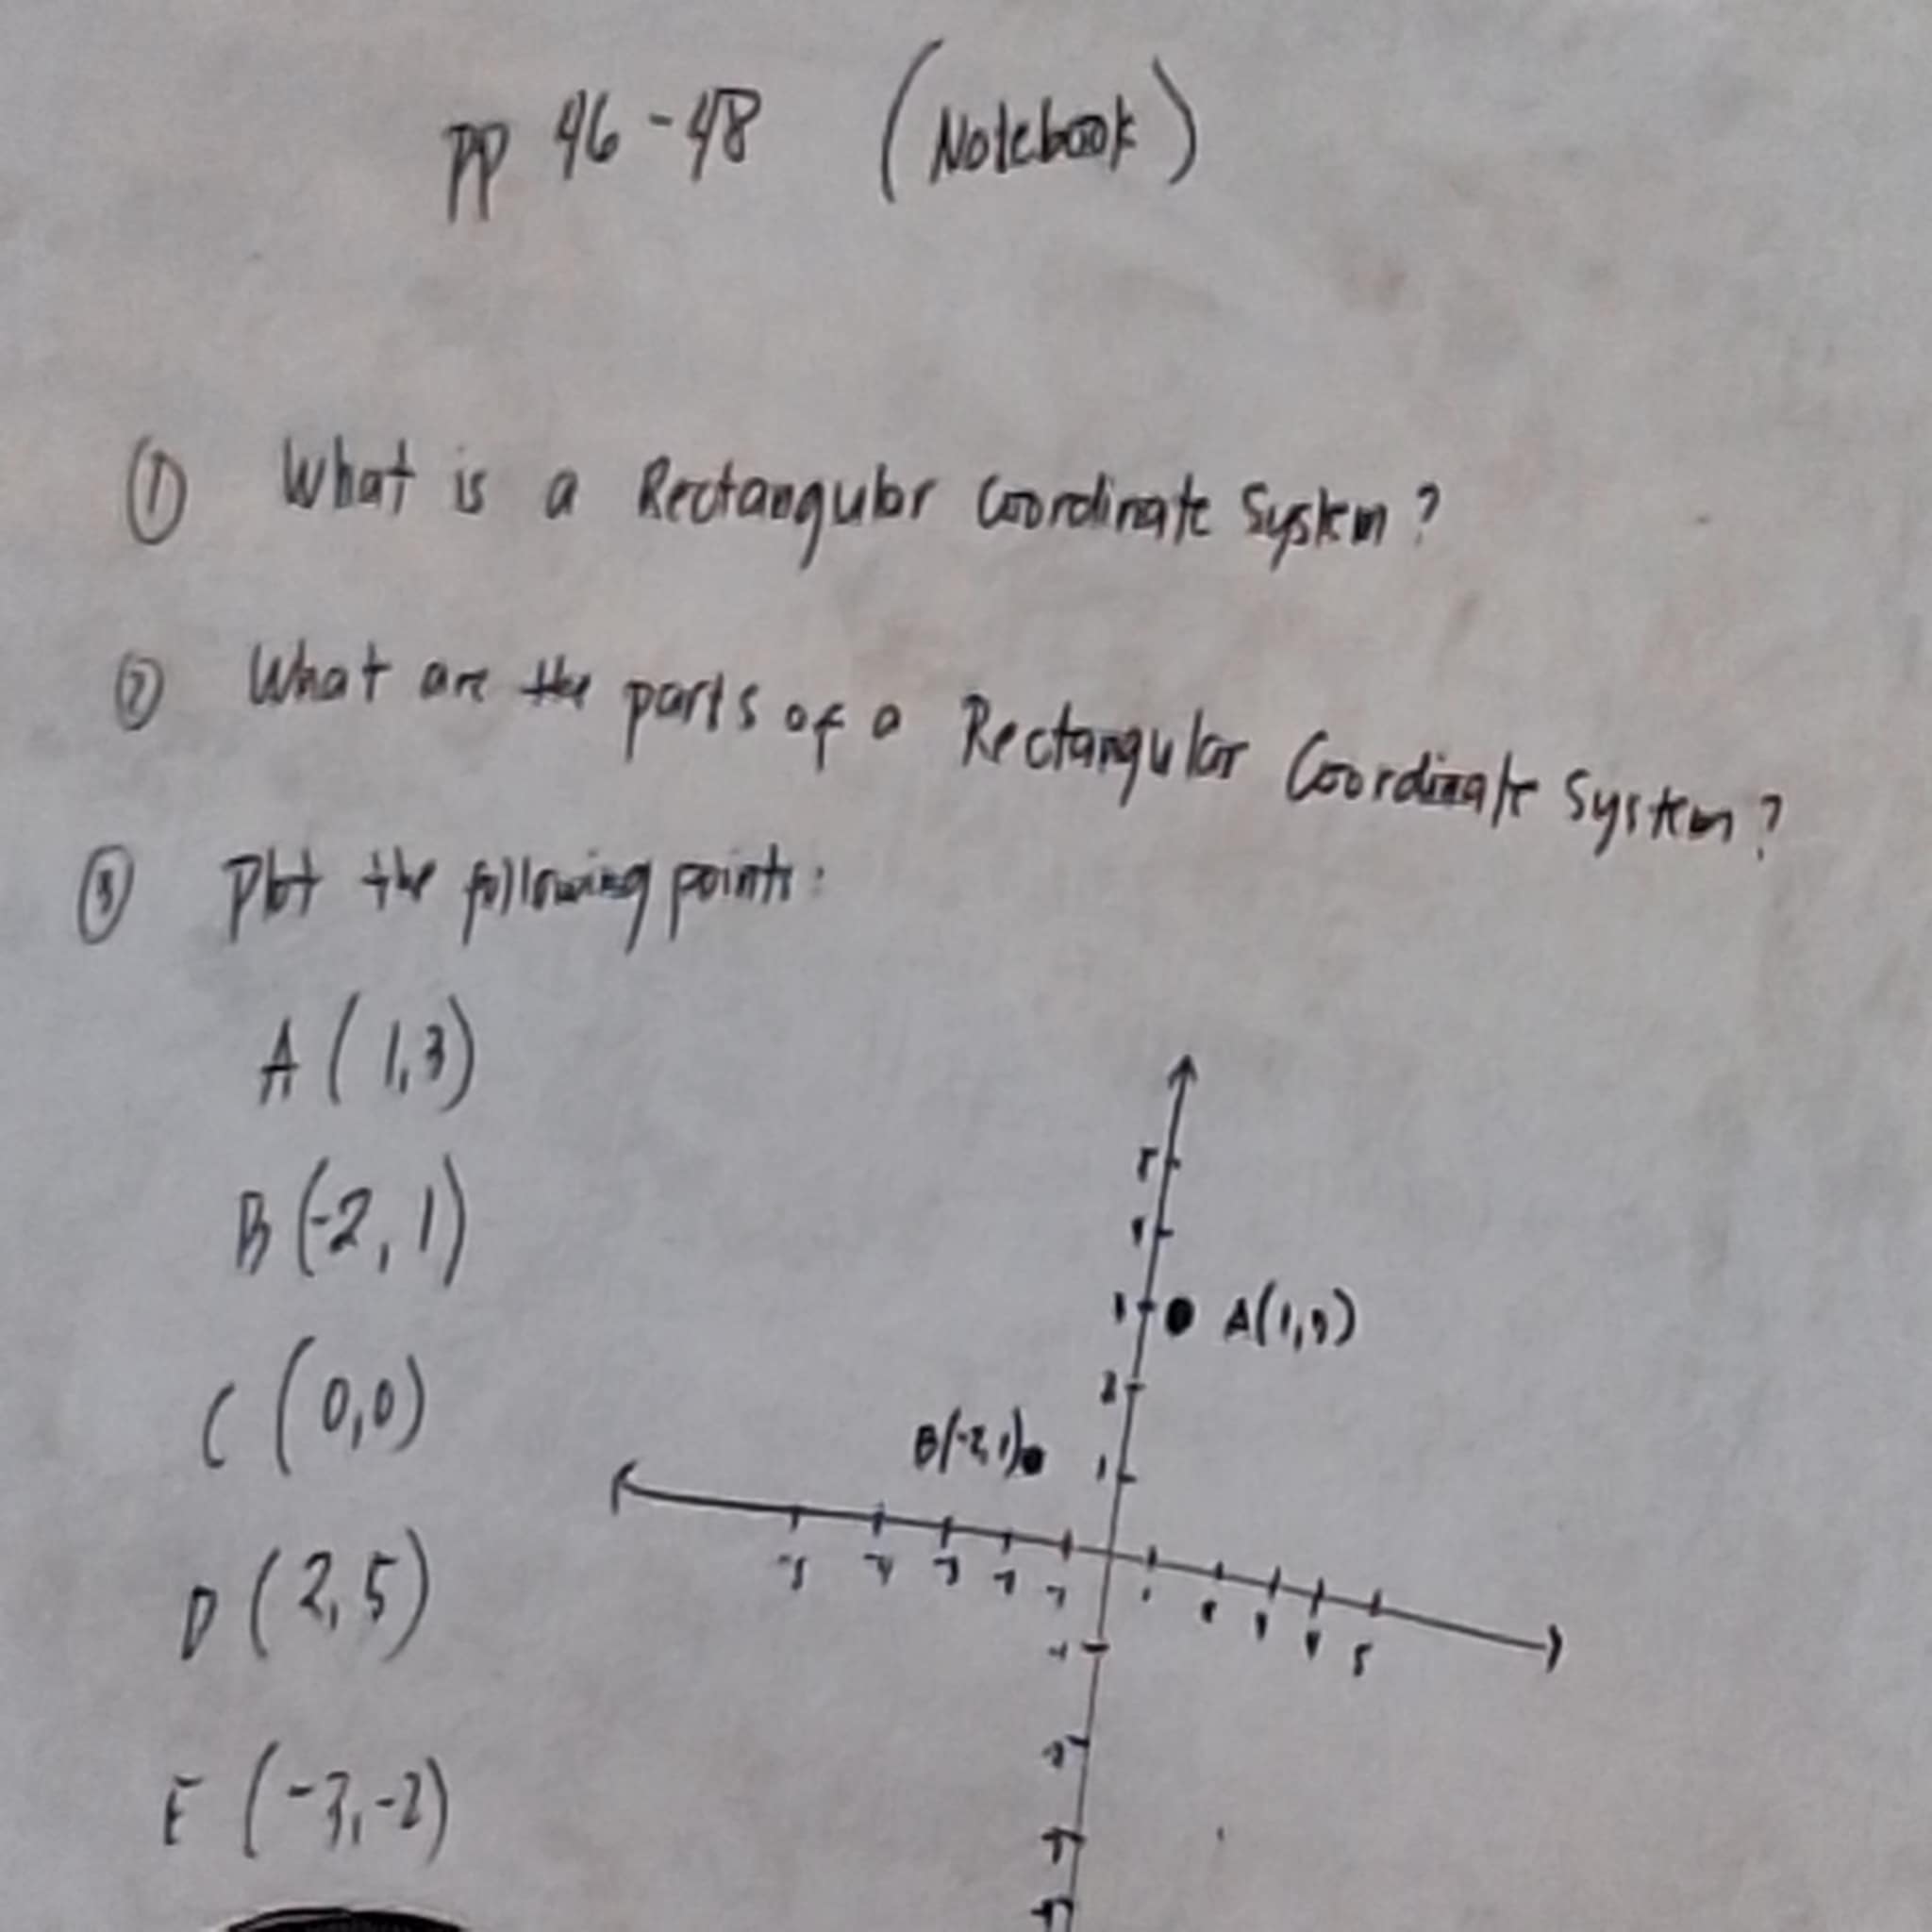 pp 46-48 (Notebook)
① What is a Rectangular Coordinate System?
② What are the parts of a Rectangular Coordinate System?
③ Plot the following points:
A (1,3)
B (-2, 1)
C (0,0)
D (2,5)
E (-3,-2)
5
4
3
A(1,3)
2
B(-2,1)
1
-5 -4 -3 -2 -1 1 2 3 4 5
-1
-2